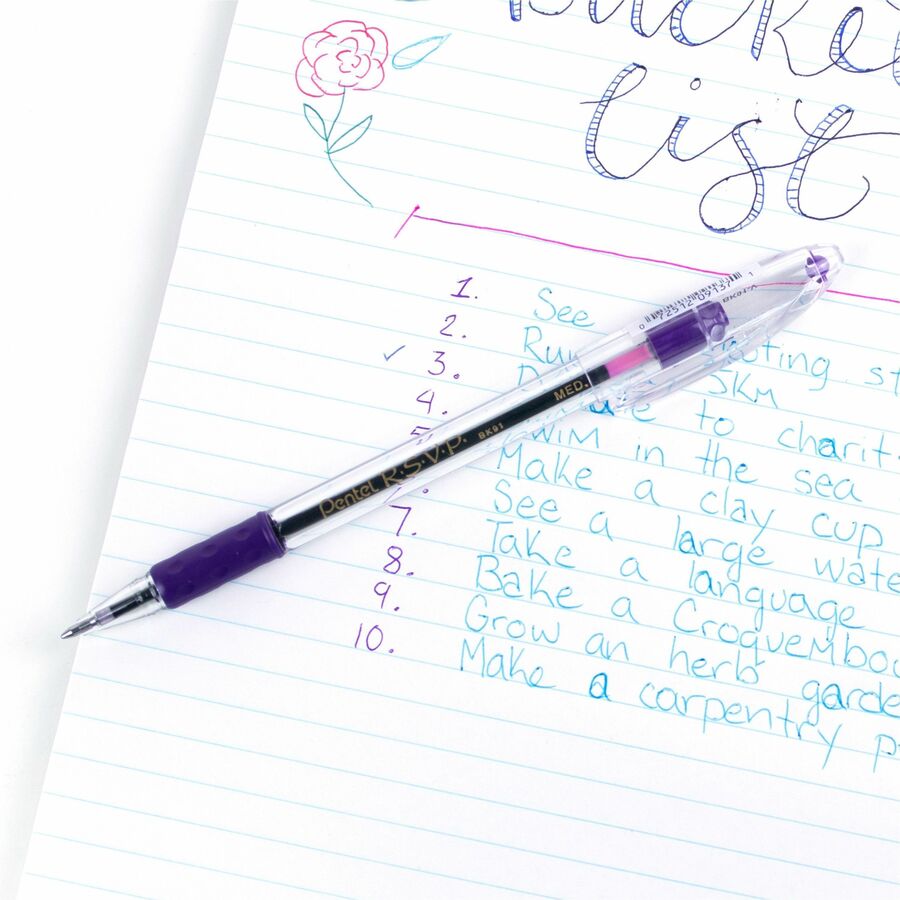 Bucket
list
1. See
2. Run 5KM
3. to charit
4. Swim in the sea
5. Make a clay cup
See a large wate
7. Take a language
8. Bake a Croquembou
9. Grow an herb garde
10. Make a carpentry p
Pentel R.S.V.P. BK91 MED.
0 72512 09137 1